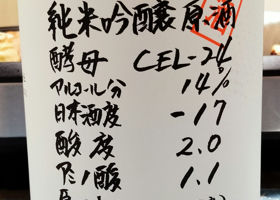 純米吟醸原酒
酵母 CEL-24
アルコール分 14%
日本酒度 -17
酸度 2.0
アミノ酸 1.1